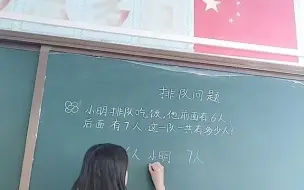 排队问题
小明排队吃饭,他前面有6人,
后面有7人,这一队一共有多少人?
6人 小明 7人